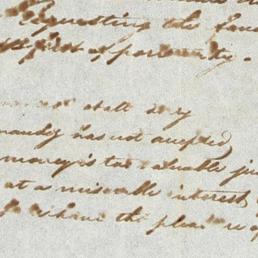 Requesting the fav
first opportunity.
not shall say
has not accepted
money is too valuable ju
at a miserable interest
the pleasure of